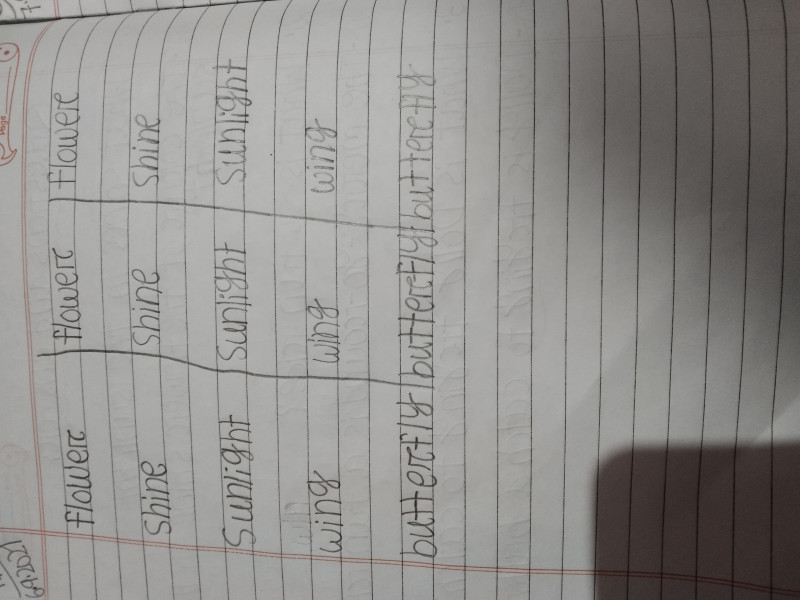 flower flower flower
Shine Shine Shine
Sunlight Sunlight Sunlight
wing wing wing
butterfly butterfly butterfly